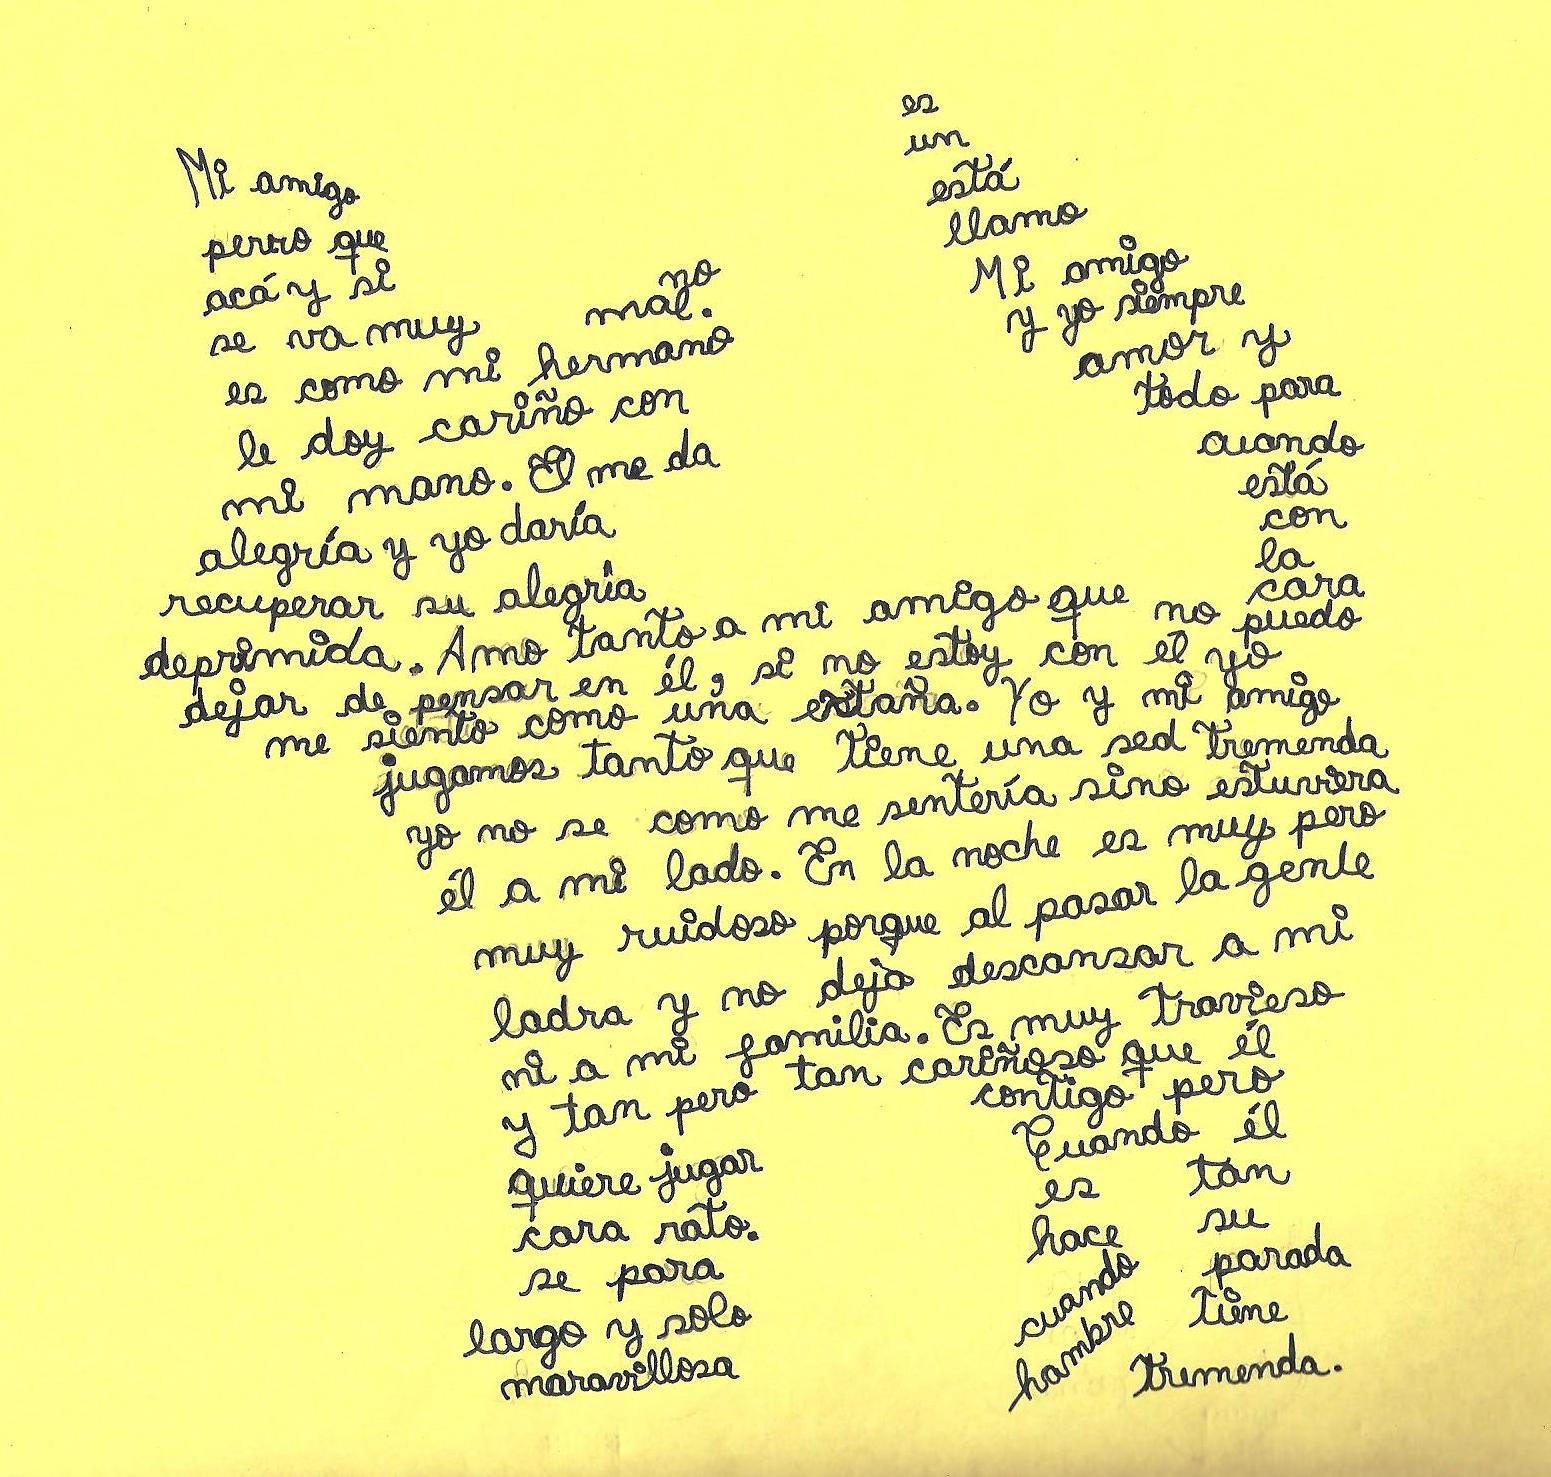 Mi amigo es
un
perro que está
acá y si no llamo
se va muy mal. Mi amigo
es como mi hermano y yo siempre
le doy cariño con amor y
mi mano. El me da
alegría y yo daría todo para
recuperar su alegría cuando
está
con
la
cara
deprimida. Amo tanto a mi amigo que no puedo
dejar de pensar en él, si no estoy con él yo
me siento como una extaña. Yo y mi amigo
jugamos tanto que tiene una sed tremenda
yo no se como me sentería sino estuviera
él a mi lado. En la noche es muy pero
muy ruidoso porque al pasar la gente
ladra y no deja descansar a mi
ni a mi familia. Es muy travieso
y tan pero tan cariñoso que él
quiere jugar contigo pero
cara rato. Cuando él
se para es tan
largo y solo hace su
maravillosa parada
cuando tiene
hambre tremenda.